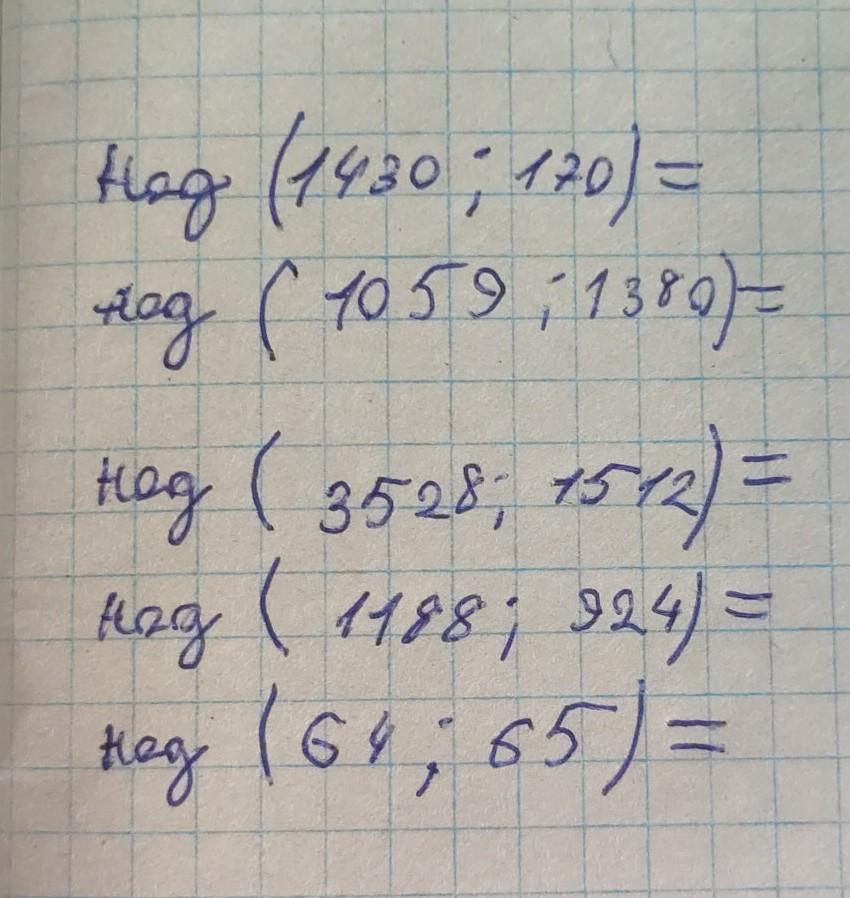 над (1430 ; 170) =
над ( 1059 ; 1380) =
над ( 3528; 1512) =
над ( 1188; 924) =
над ( 64 ; 65) =